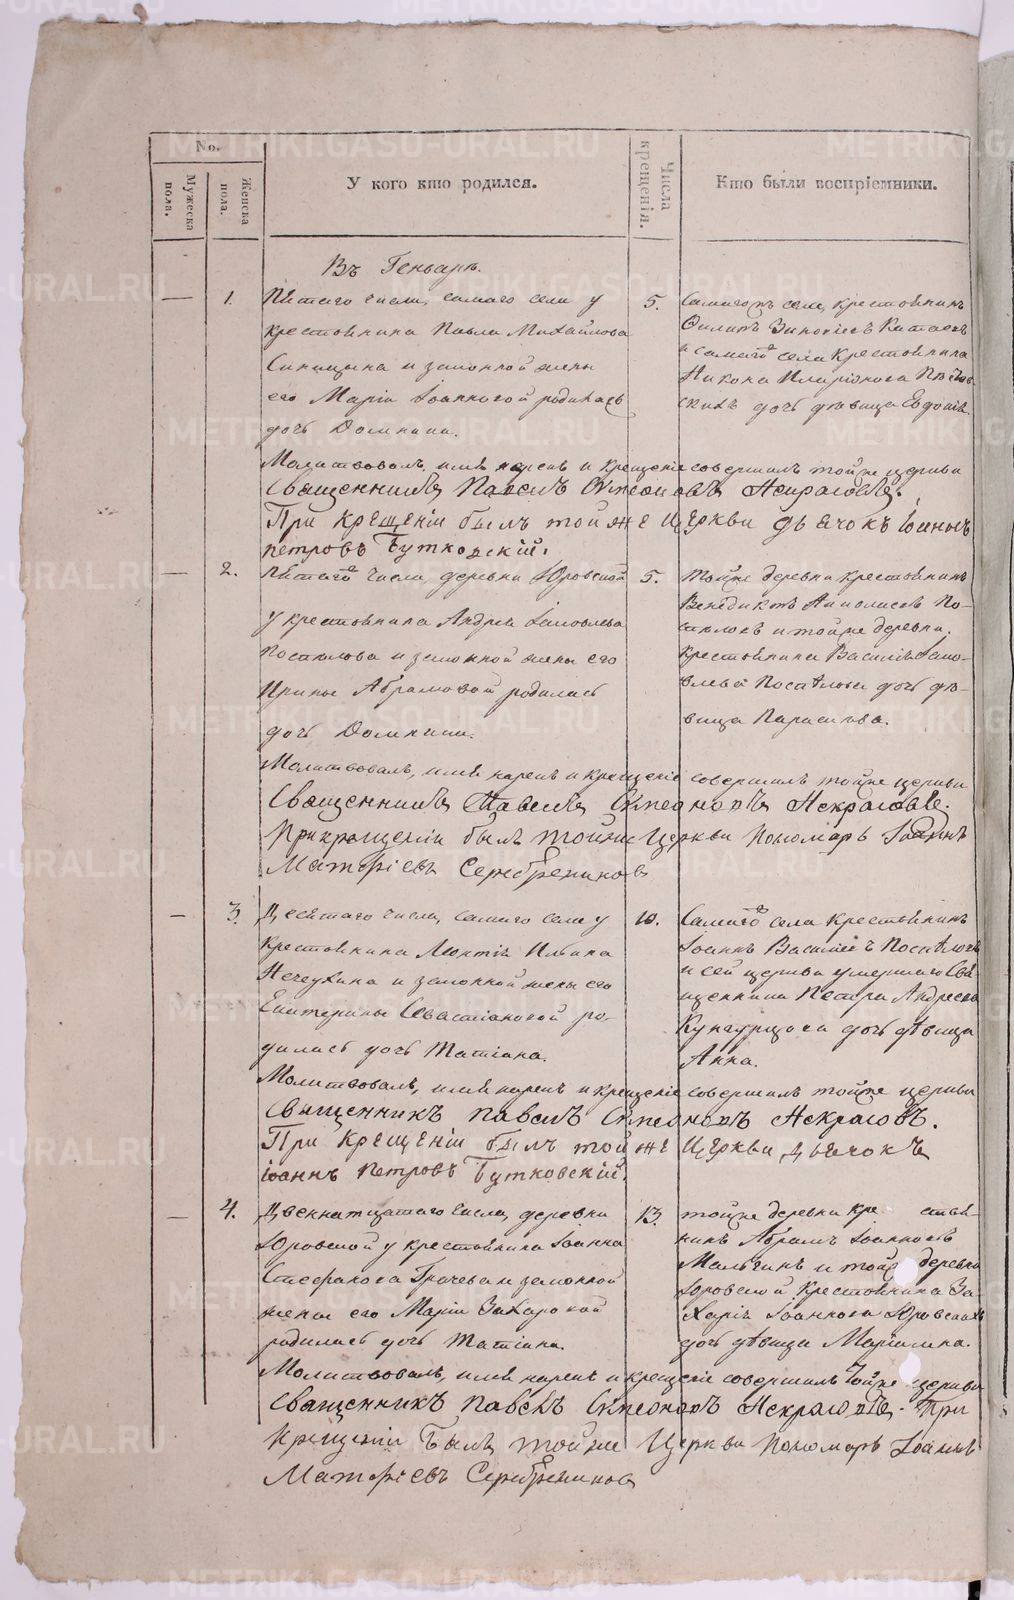 No.
Мужеска пола.
Женска пола.
У кого кто родился.
Числа крещенія.
Кто были воспріемники.
Въ Генварѣ.
— 1. Пятаго числа, самаго села у
крестьянина Павла Михайлова
Синицына и законной жены
его Маріи Іоанновой родилась
дочь Домника.
5. Самагожъ села, крестьянинъ
Филипъ Зиновіевъ Катаевъ
и самагожъ села крестьянина
Никона Иларіонова
дочь дѣвица Евдокія.
Молитвовалъ, имя нарекъ и крещеніе совершилъ тойже церкви
Священникъ Павелъ Симеоновъ Некрасовъ.
При крещеніи былъ тойже церкви дьячокъ Іоаннъ
Петровъ Бутковскій.
— 2. Пятагожъ числа, деревни Юровской
у крестьянина Андрея Іаковлева
Поспѣлова и законной жены его
Ирины Абрамовой родилась
дочь Домника.
5. Тойже деревни крестьянинъ
Венедиктъ По-
спѣловъ и тойже деревни
крестьянина Василія Іако-
влева Поспѣлова дочь дѣ-
вица Параскева.
Молитвовалъ, имя нарекъ и крещеніе совершилъ тойже церкви
Священникъ Павелъ Симеоновъ Некрасовъ.
При крещеніи былъ тойже церкви пономарь Іоаннъ
Матфіевъ Серебренниковъ
— 3. Десятаго числа, самаго села у
крестьянина Леонтія Ильина
Нечеухина и законной жены его
Екатерины Севастіановой ро-
дилась дочь Татіана.
10. Самагожъ села крестьянинъ
Іоаннъ Василіевъ Поспѣловъ
и сей церкви умершаго Свя-
щенника Петра Андреева
Кунгурцова дочь дѣвица
Анна.
Молитвовалъ, имя нарекъ и крещеніе совершилъ тойже церкви
Священникъ Павелъ Симеоновъ Некрасовъ.
При крещеніи былъ тойже церкви дьячокъ
Іоаннъ Петровъ Бутковскій.
— 4. Двенатцатаго числа, деревни
Юровской у крестьянина Іоанна
Стефанова Грачева и законной
жены его Маріи Захаровой
родилась дочь Татіана.
13. Тойже деревни кре стья-
нинъ Абрамъ Іоанновъ
Мальгинъ и тойже деревни
Юровской крестьянина За-
харія Іоаннова Юровскихъ
дочь дѣвица Маріамна.
Молитвовалъ, имя нарекъ и крещеніе совершилъ тойже церкви
Священникъ Павелъ Симеоновъ Некрасовъ. При
крещеніи былъ тойже церкви пономарь Іоаннъ
Матфіевъ Серебренниковъ
METRIKI.GASO-URAL.RU